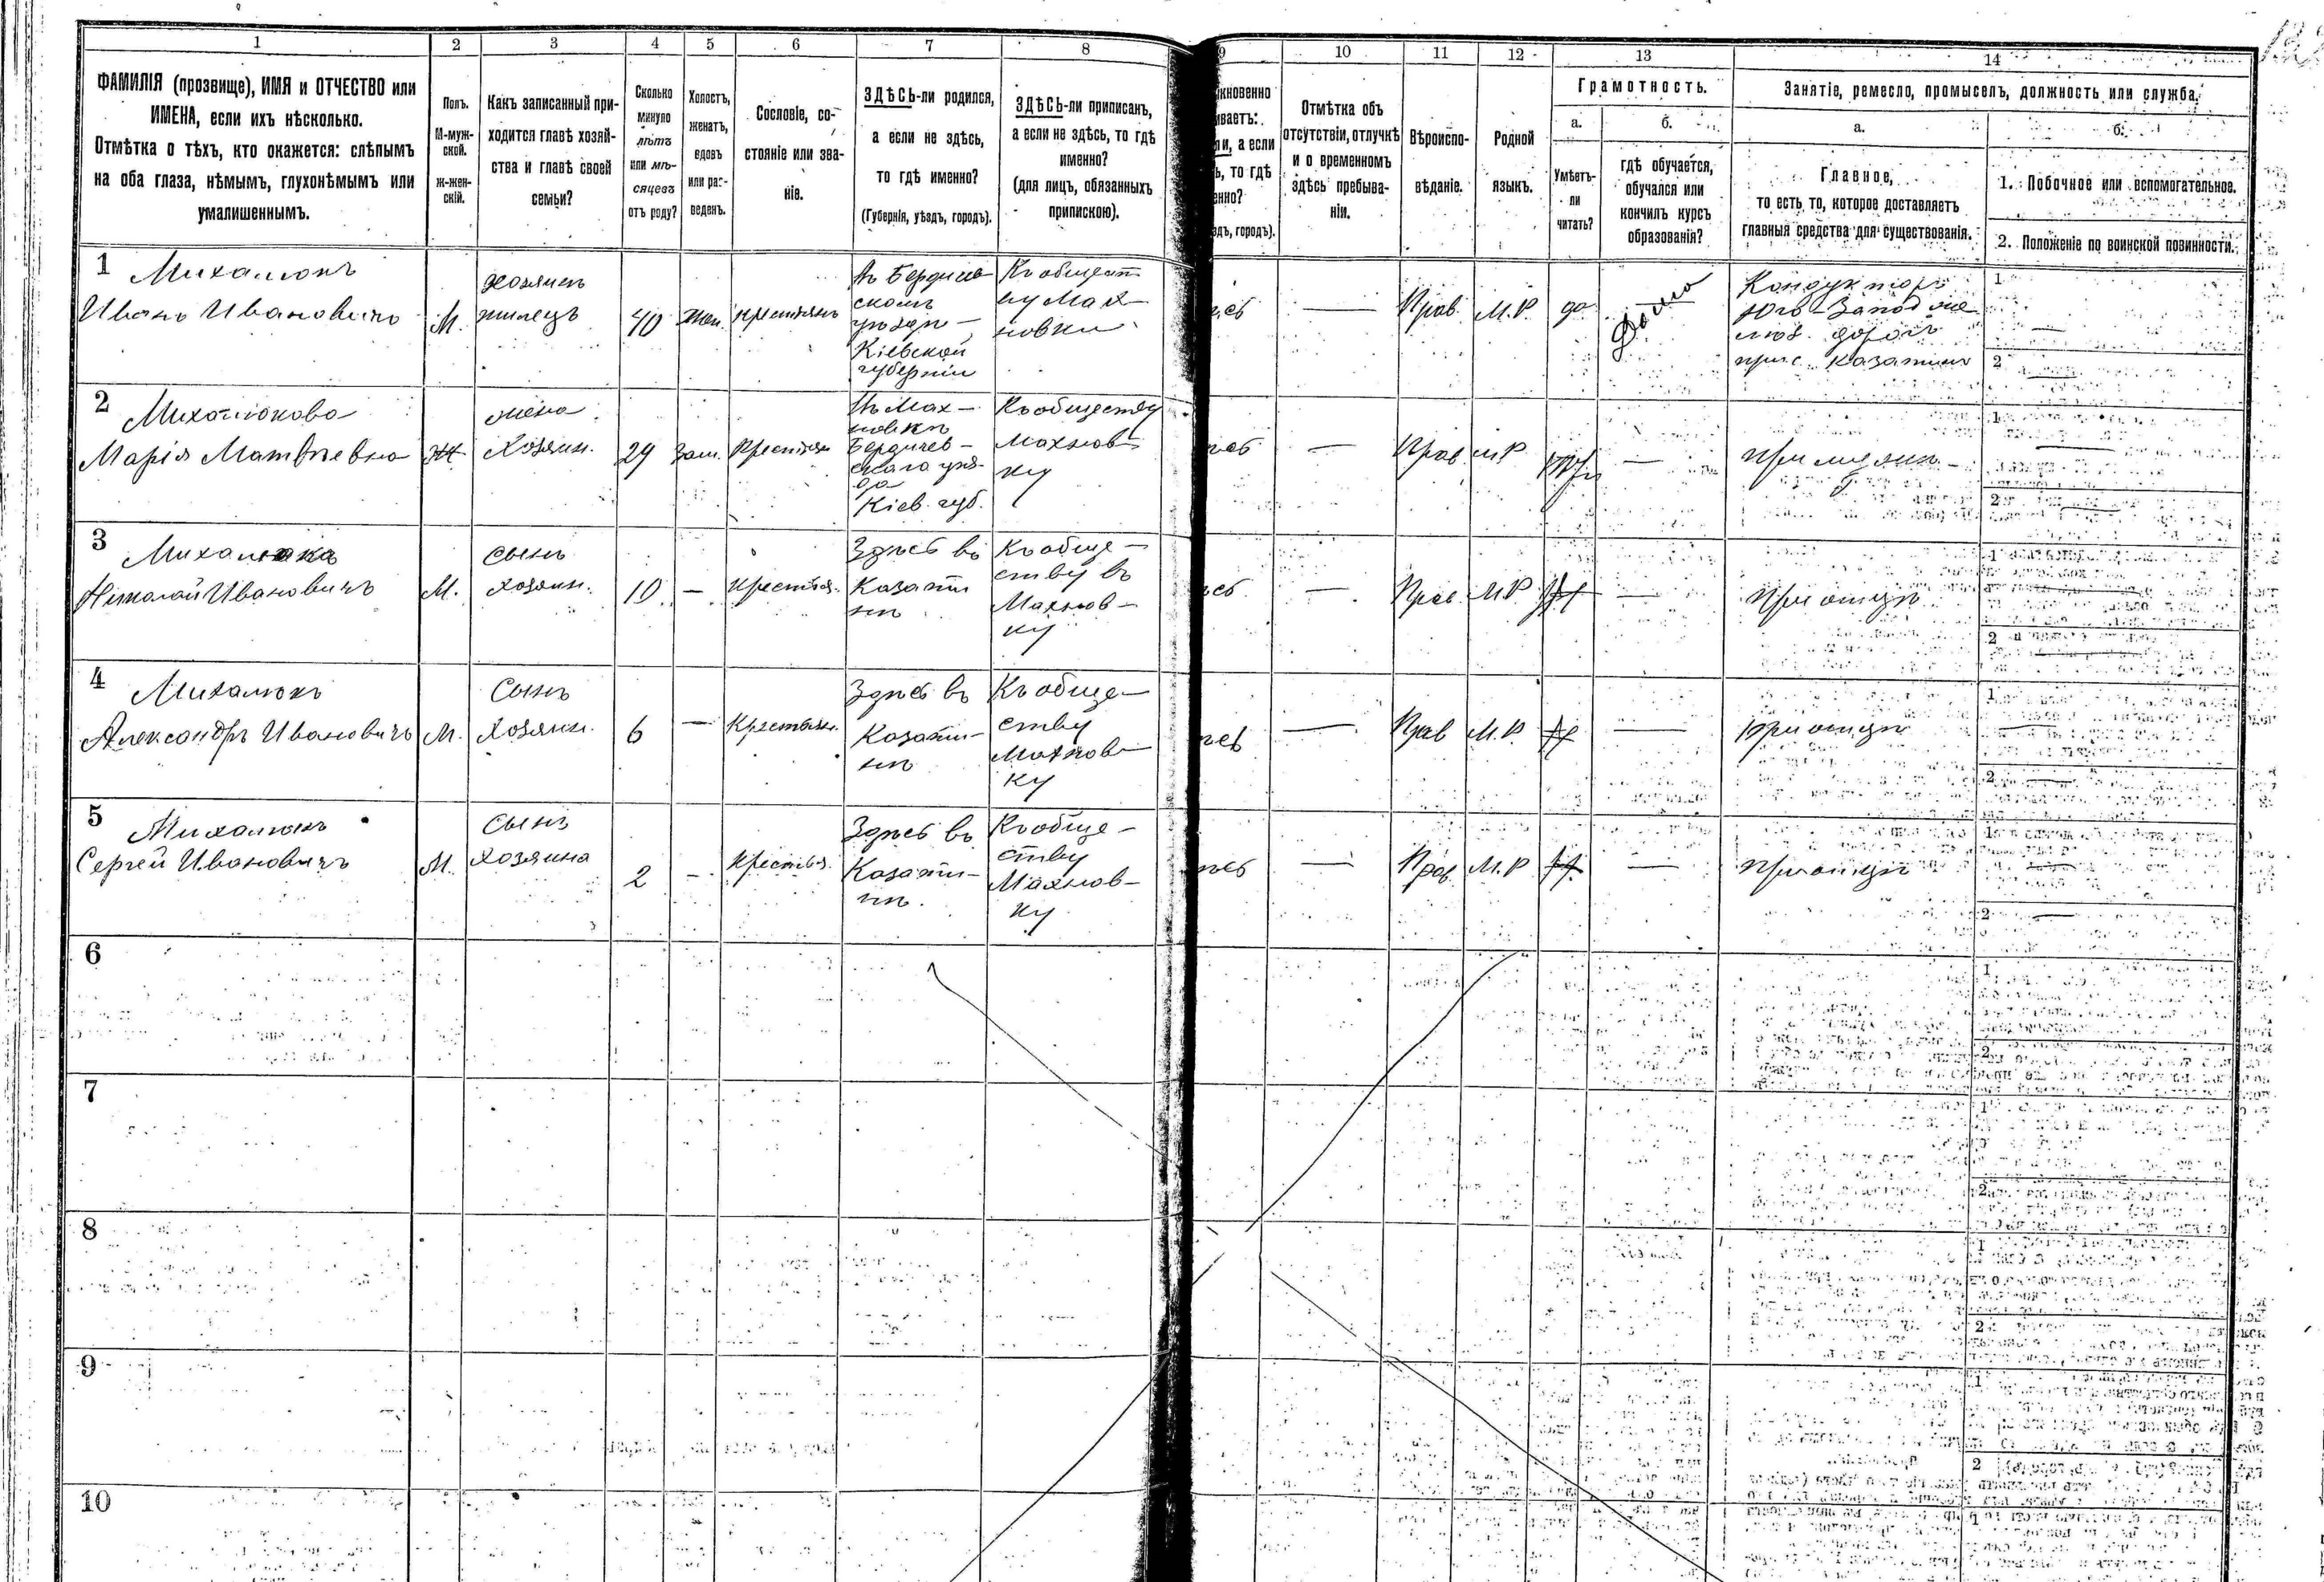 1 2 3 4 5 6 7 8 9 10 11 12 13 14
ФАМИЛІЯ (прозвище), ИМЯ и ОТЧЕСТВО или
ИМЕНА, если ихъ нѣсколько.
Отмѣтка о тѣхъ, кто окажется: слѣпымъ
на оба глаза, нѣмымъ, глухонѣмымъ или
умалишеннымъ.
Полъ.
М-муж-
ской.
Ж-жен-
скій.
Какъ записанный при-
ходится главѣ хозяй-
ства и главѣ своей
семьи?
Сколько
минуло
лѣтъ
или мѣ-
сяцевъ
отъ роду?
Холостъ,
женатъ,
вдовъ
или раз-
веденъ.
Сословіе, со-
стояніе или зва-
ніе.
ЗДѢСЬ-ли родился,
а если не здѣсь,
то гдѣ именно?
(Губернія, уѣздъ, городъ).
ЗДѢСЬ-ли приписанъ,
а если не здѣсь, то гдѣ
именно?
(для лицъ, обязанныхъ
припискою).
кновенно
ваетъ:
ли, а если
ь, то гдѣ
енно?
здъ, городъ).
Отмѣтка объ
отсутствіи, отлучкѣ
и о временномъ
здѣсь пребыва-
ніи.
Вѣроиспо-
вѣданіе.
Родной
языкъ.
Грамотность.
а.
Умѣетъ-
ли
читать?
б.
гдѣ обучается,
обучался или
кончилъ курсъ
образованія?
Занятіе, ремесло, промыселъ, должность или служба.
а.
Главное,
то есть то, которое доставляетъ
главныя средства для существованія.
б.
1. Побочное или вспомогательное.
2. Положеніе по воинской повинности.
1 Михалюкъ
Иванъ Ивановичъ
М.
хозяинъ
жилецъ
40
жен.
крестьян
Въ Бердичев
скомъ
уѣздѣ
Кіевской
губерніи
Къ общест
ву Мах
новки
ѣсь
—
Прав.
М.Р.
да
Дома
Кондукторъ
Юго-Запад же
лѣз. дорогъ
при с. Казатинъ
1
2
2 Михалюкова
Марія Матвѣевна
Ж
жена
Хозяин.
29
Зам.
Крестьян
Въ Мах-
новкѣ
Бердичев-
скаго уѣз-
да
Кіев. губ.
Къ обществу
Махнов-
ку
ѣсь
—
Прав
М.Р
—
При мужѣ
1
2
3 Михалюкъ
Николай Ивановичъ
М.
сынъ
хозяин.
10
—
Крестья.
Здѣсь въ
Казати
нѣ
Къ обще-
ству въ
Махнов-
ку
ѣсь
—
Прав.
М.Р
—
При отцѣ
1
2
4 Михалюкъ
Александръ Ивановичъ
М.
Сынъ
Хозяин.
6
—
Крестьян.
Здѣсь въ
Казати-
нѣ
Къ обще-
ству
Махнов-
ку
ѣсь
—
Прав
М.Р.
—
При отцѣ
1
2
5 Михалюкъ
Сергей Ивановичъ
М.
Сынъ
Хозяина
2
—
Крестья.
Здѣсь въ
Казати-
нѣ.
Къ обще-
ству
Махнов-
ку
ѣсь
—
Прав.
М.Р
—
При отцѣ
1
2
6
1
2
7
1
2
8
1
2
9
1
2
10
1